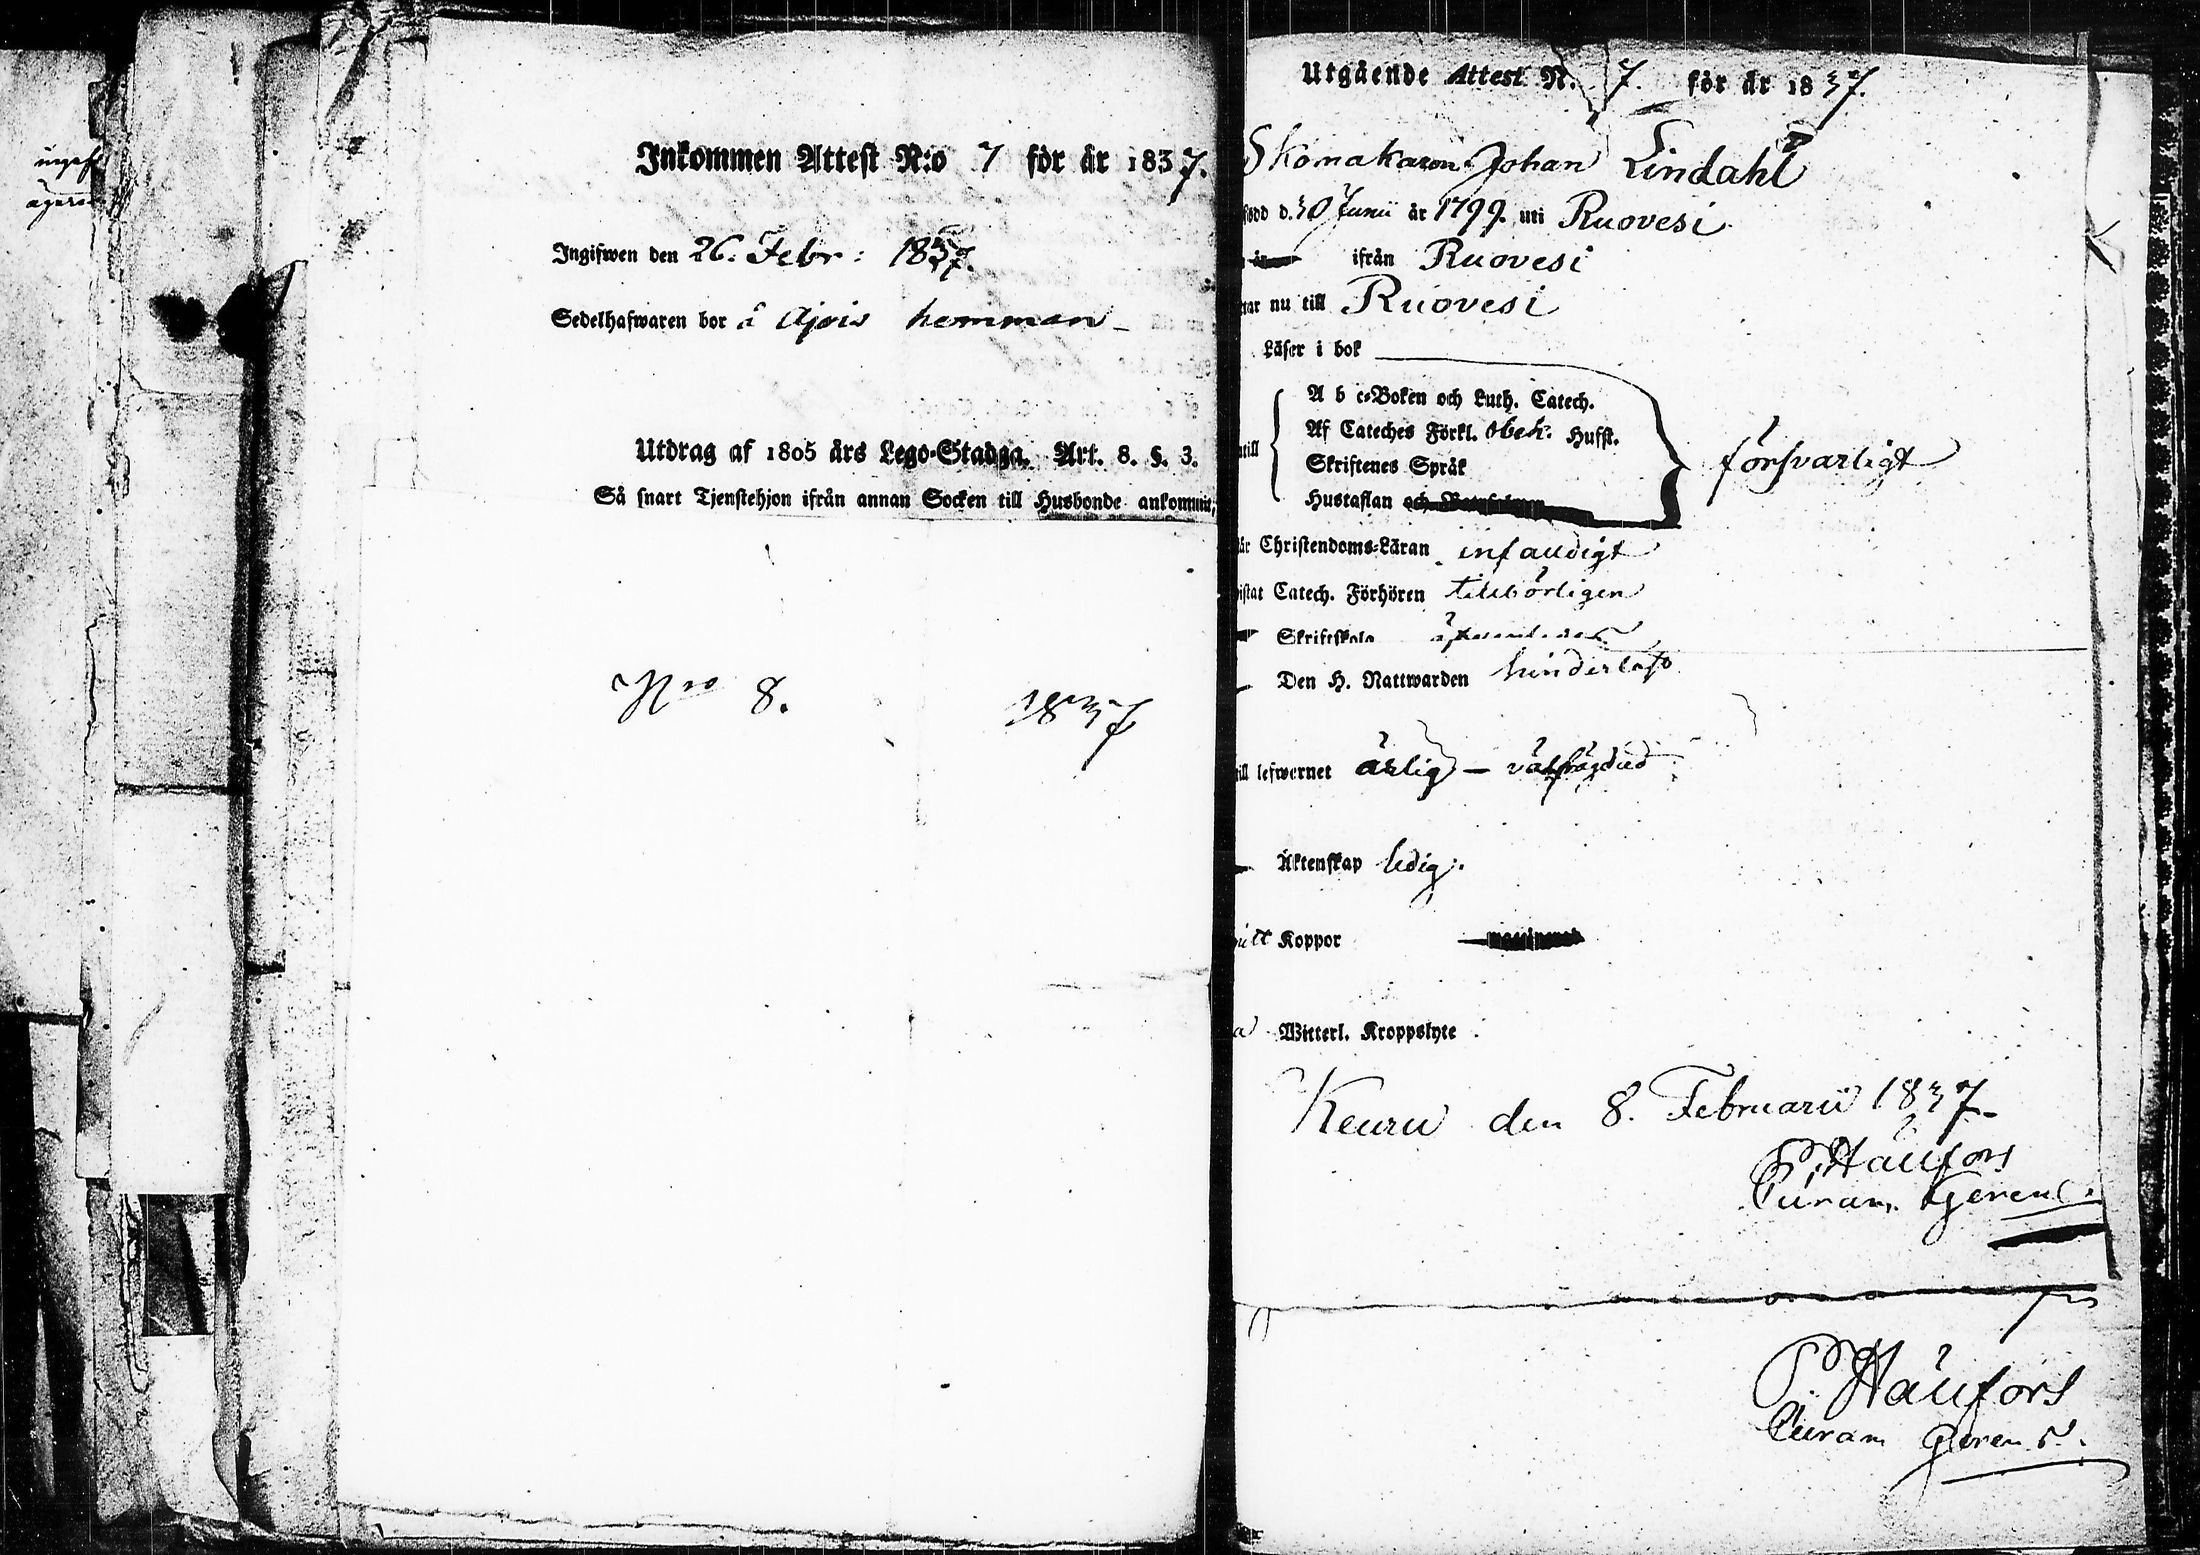 Inkommen Attest N:o 7 för år 1837.
Ingifwen den 26. Febr: 1837.
Sedelhafwaren bor å Ajois hemman
Utdrag af 1805 års Lego-Stadga. Art. 8. §. 3.
Så snart Tjenstehjon ifrån annan Socken till Husbonde ankommit,
Nro 8. 1837
Utgående Attest N. 7. för år 1837.
Skomakaren Johan Lindahl
född d. 30 Junii år 1799. uti Ruovesi
ifrån Ruovesi
nu till Ruovesi
Läser i bok
A b c-Boken och Luth. Catech.
Af Cateches Förkl. obek. Hufst.
Skriftenes Språk
försvarligt
Hustaflan
Christendoms-Läran enfaldigt
Catech. Förhören tillbörligen
Skriftskola
Den H. Nattwarden
till lefwernet ärlig - välfrägdad
Äktenskap ledig.
Koppor
Witterl. Kroppslyte
Keuru den 8. Februarii 1837.
P. Hällfors
Curam Gerens.
P. Hällfors
Curam Gerens.